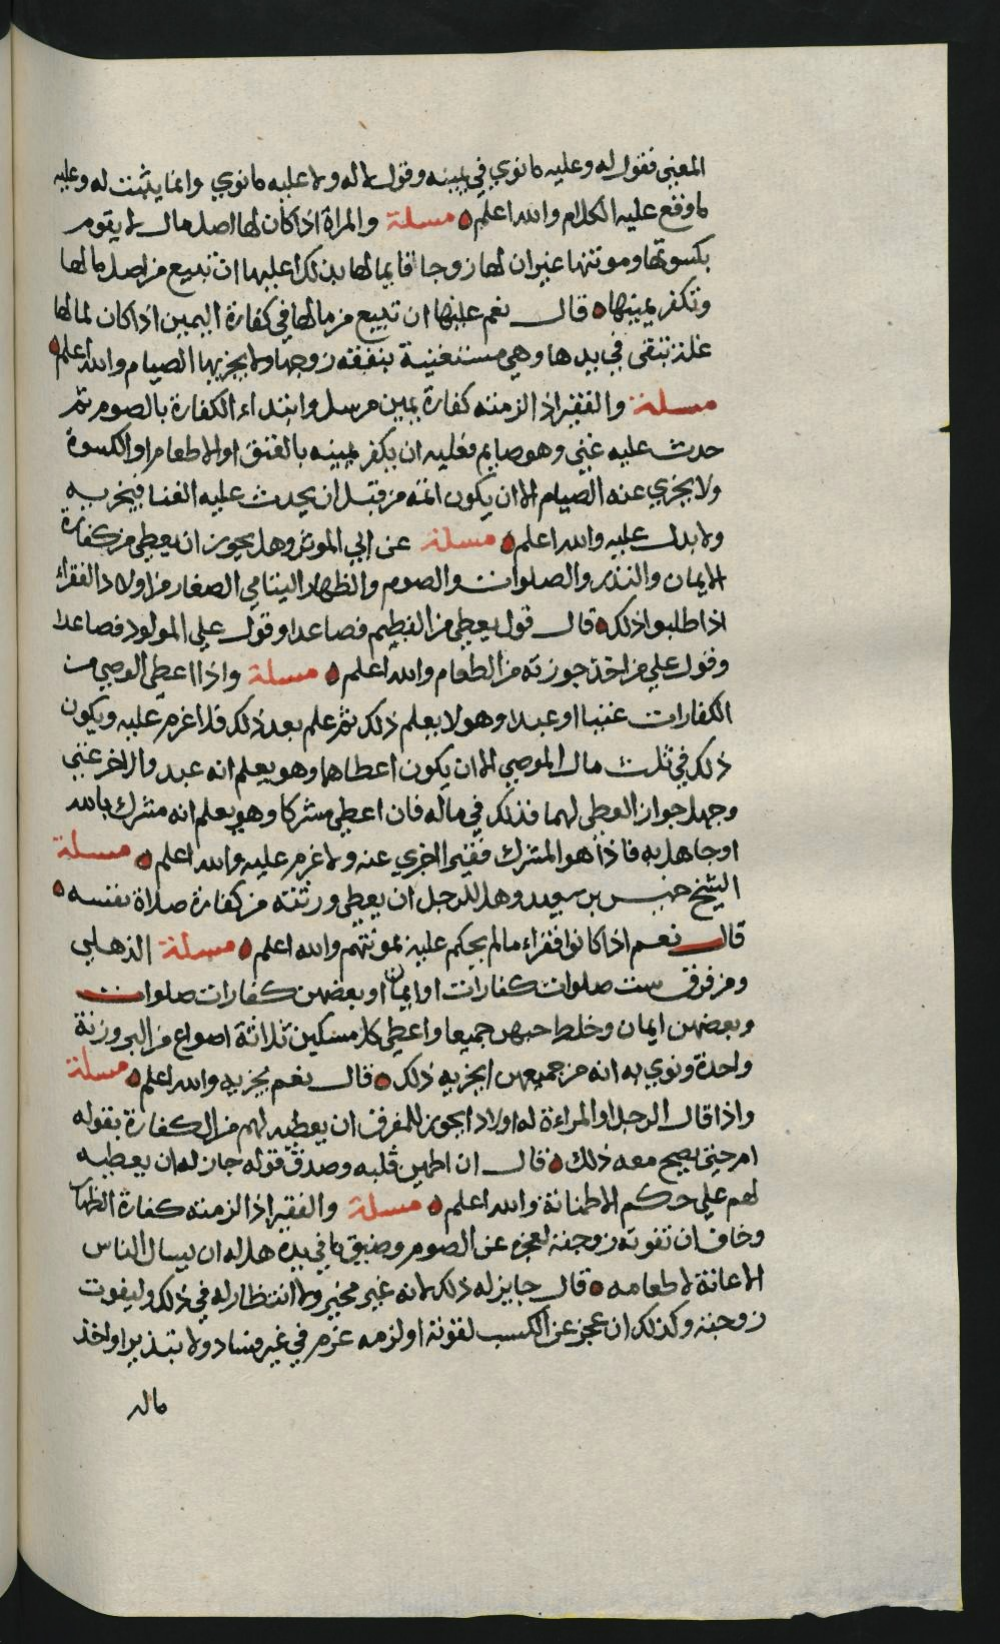 المعني فقول له وعليه ما نوي في يمينه وقول لا له ولا عليه ما نوي وانما يثبت له وعليه
ما وقع عليه الكلام والله اعلم مسلة والمراة اذا كان لها اصل مال لا يقوم
بكسوتها وموتنها غير ان لها زوجا قايما لها بذلك اعليها ان تبيع من اصل مالها
وتكفر يمينها قال نعم عليها ان تبيع من مالها في كفارة اليمين اذا كان لمالها
غلة تبقي في يدها وهي مستغنية بنفقه زوجها ولا يجزيها الصيام والله اعلم
مسلة والفقير اذا لزمته كفارة يمين مرسل وابتداء الكفارة بالصوم ثم
حدث عليه غني وهو صايم فعليه ان يكفر يمينه بالعتق او الاطعام او الكسوة
ولا يجزي عنه الصيام الا ان يكون اتمه من قبل ان يحدث عليه الغنا فيجزيه
ولا بدل عليه والله اعلم مسلة عن ابي الموثر وهل يجوز ان يعطي من كفارة
الايمان والنذر والصلوات والصوم والظهار اليتامي الصغار من اولاد الفقراء
اذا طلبوا ذلك قال قول يعطي من الفطيم فصاعدا وقول علي المولود فصاعدا
وقول علي من اخذ جوزته من الطعام والله اعلم مسلة واذا اعطي الوصي من
الكفارات غنيا او عبدا وهو لا يعلم ذلك ثم علم بعد ذلك فلا غرم عليه ويكون
ذلك في ثلث مال الموصي الا ان يكون اعطاهما وهو يعلم انه عبد والاخر غني
وجهل جواز العطي لهما فذلك في ماله فان اعطي مشركا وهو يعلم انه مشرك بالله
او جاهل به فاذا هو المشرك فقير اجزي عنه ولا غرم عليه والله اعلم مسلة
الشيخ خميس بن سعيد وهل للرجل ان يعطي ورثته من كفارة صلاة نفسه
قال نعم اذا كانوا فقراء مالم يحكم عليه بمونتهم والله اعلم مسلة الذهلي
ومن فرق ست صلوات كفارات او ايمان او بعضهن كفارات صلوات
وبعضهن ايمان وخلط حبهن جميعا واعطي كل مسكين ثلاثة اصواع من البر وزنة
واحدة ونوي به انه من جميعهن ايجزيه ذلك قال نعم يجزيه والله اعلم مسلة
واذا قال الرجل او المراءة له اولاد ايجوز للمفرق ان يعطيه لهم من الكفارة بقوله
ام حتي يصح معه ذلك قال ان اطمين قلبه وصدق قوله جاز له ان يعطيه
لهم علي حكم الاطمنانة والله اعلم مسلة والفقير اذا لزمته كفارة الظهار
وخاف ان تفوته زوجته لعجزه عن الصوم وضيق ما في يده هل له ان يسال الناس
الاعانة لاطعامه قال جايز له ذلك لانه غير مخير ولا انتظار له في ذلك وليفوت
زوجته وكذلك ان عجز عن الكسب لقوته او لزمه غرم في غير فساد ولا تبذير او اخذ
ماله